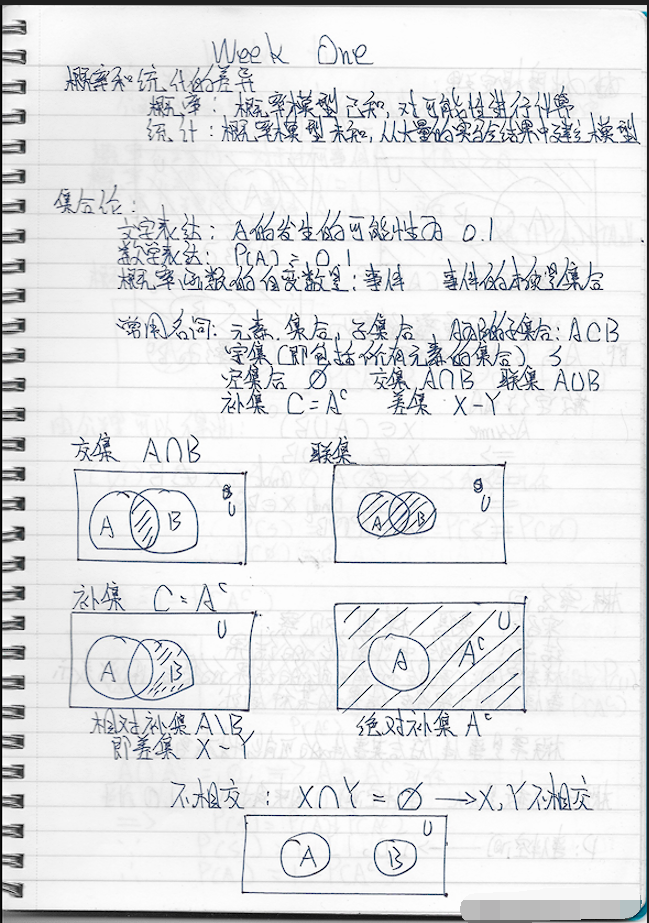 Week One
概率和统计的差异
概率：概率模型已知，对可能性进行计算
统计：概率模型未知，从大量的实验结果中建立模型
集合论：
文字表达：A的发生的可能性为 0.1
数学表达：P(A) = 0.1
概率函数的自变数是：事件 事件的本质是集合
常用名词：元素、集合、子集合 A为B的子集合：A⊂B
宇集(即包括所有元素的集合)
空集合 ∅ 交集 A∩B 联集 A∪B
补集 C = Aᶜ 差集 X - Y
交集 A∩B 联集
A B U
A B U
补集 C = Aᶜ
A B U
A Aᶜ U
相对补集 A\B 绝对补集 Aᶜ
即差集 X - Y
不相交：X∩Y = ∅ → X, Y不相交
A B U